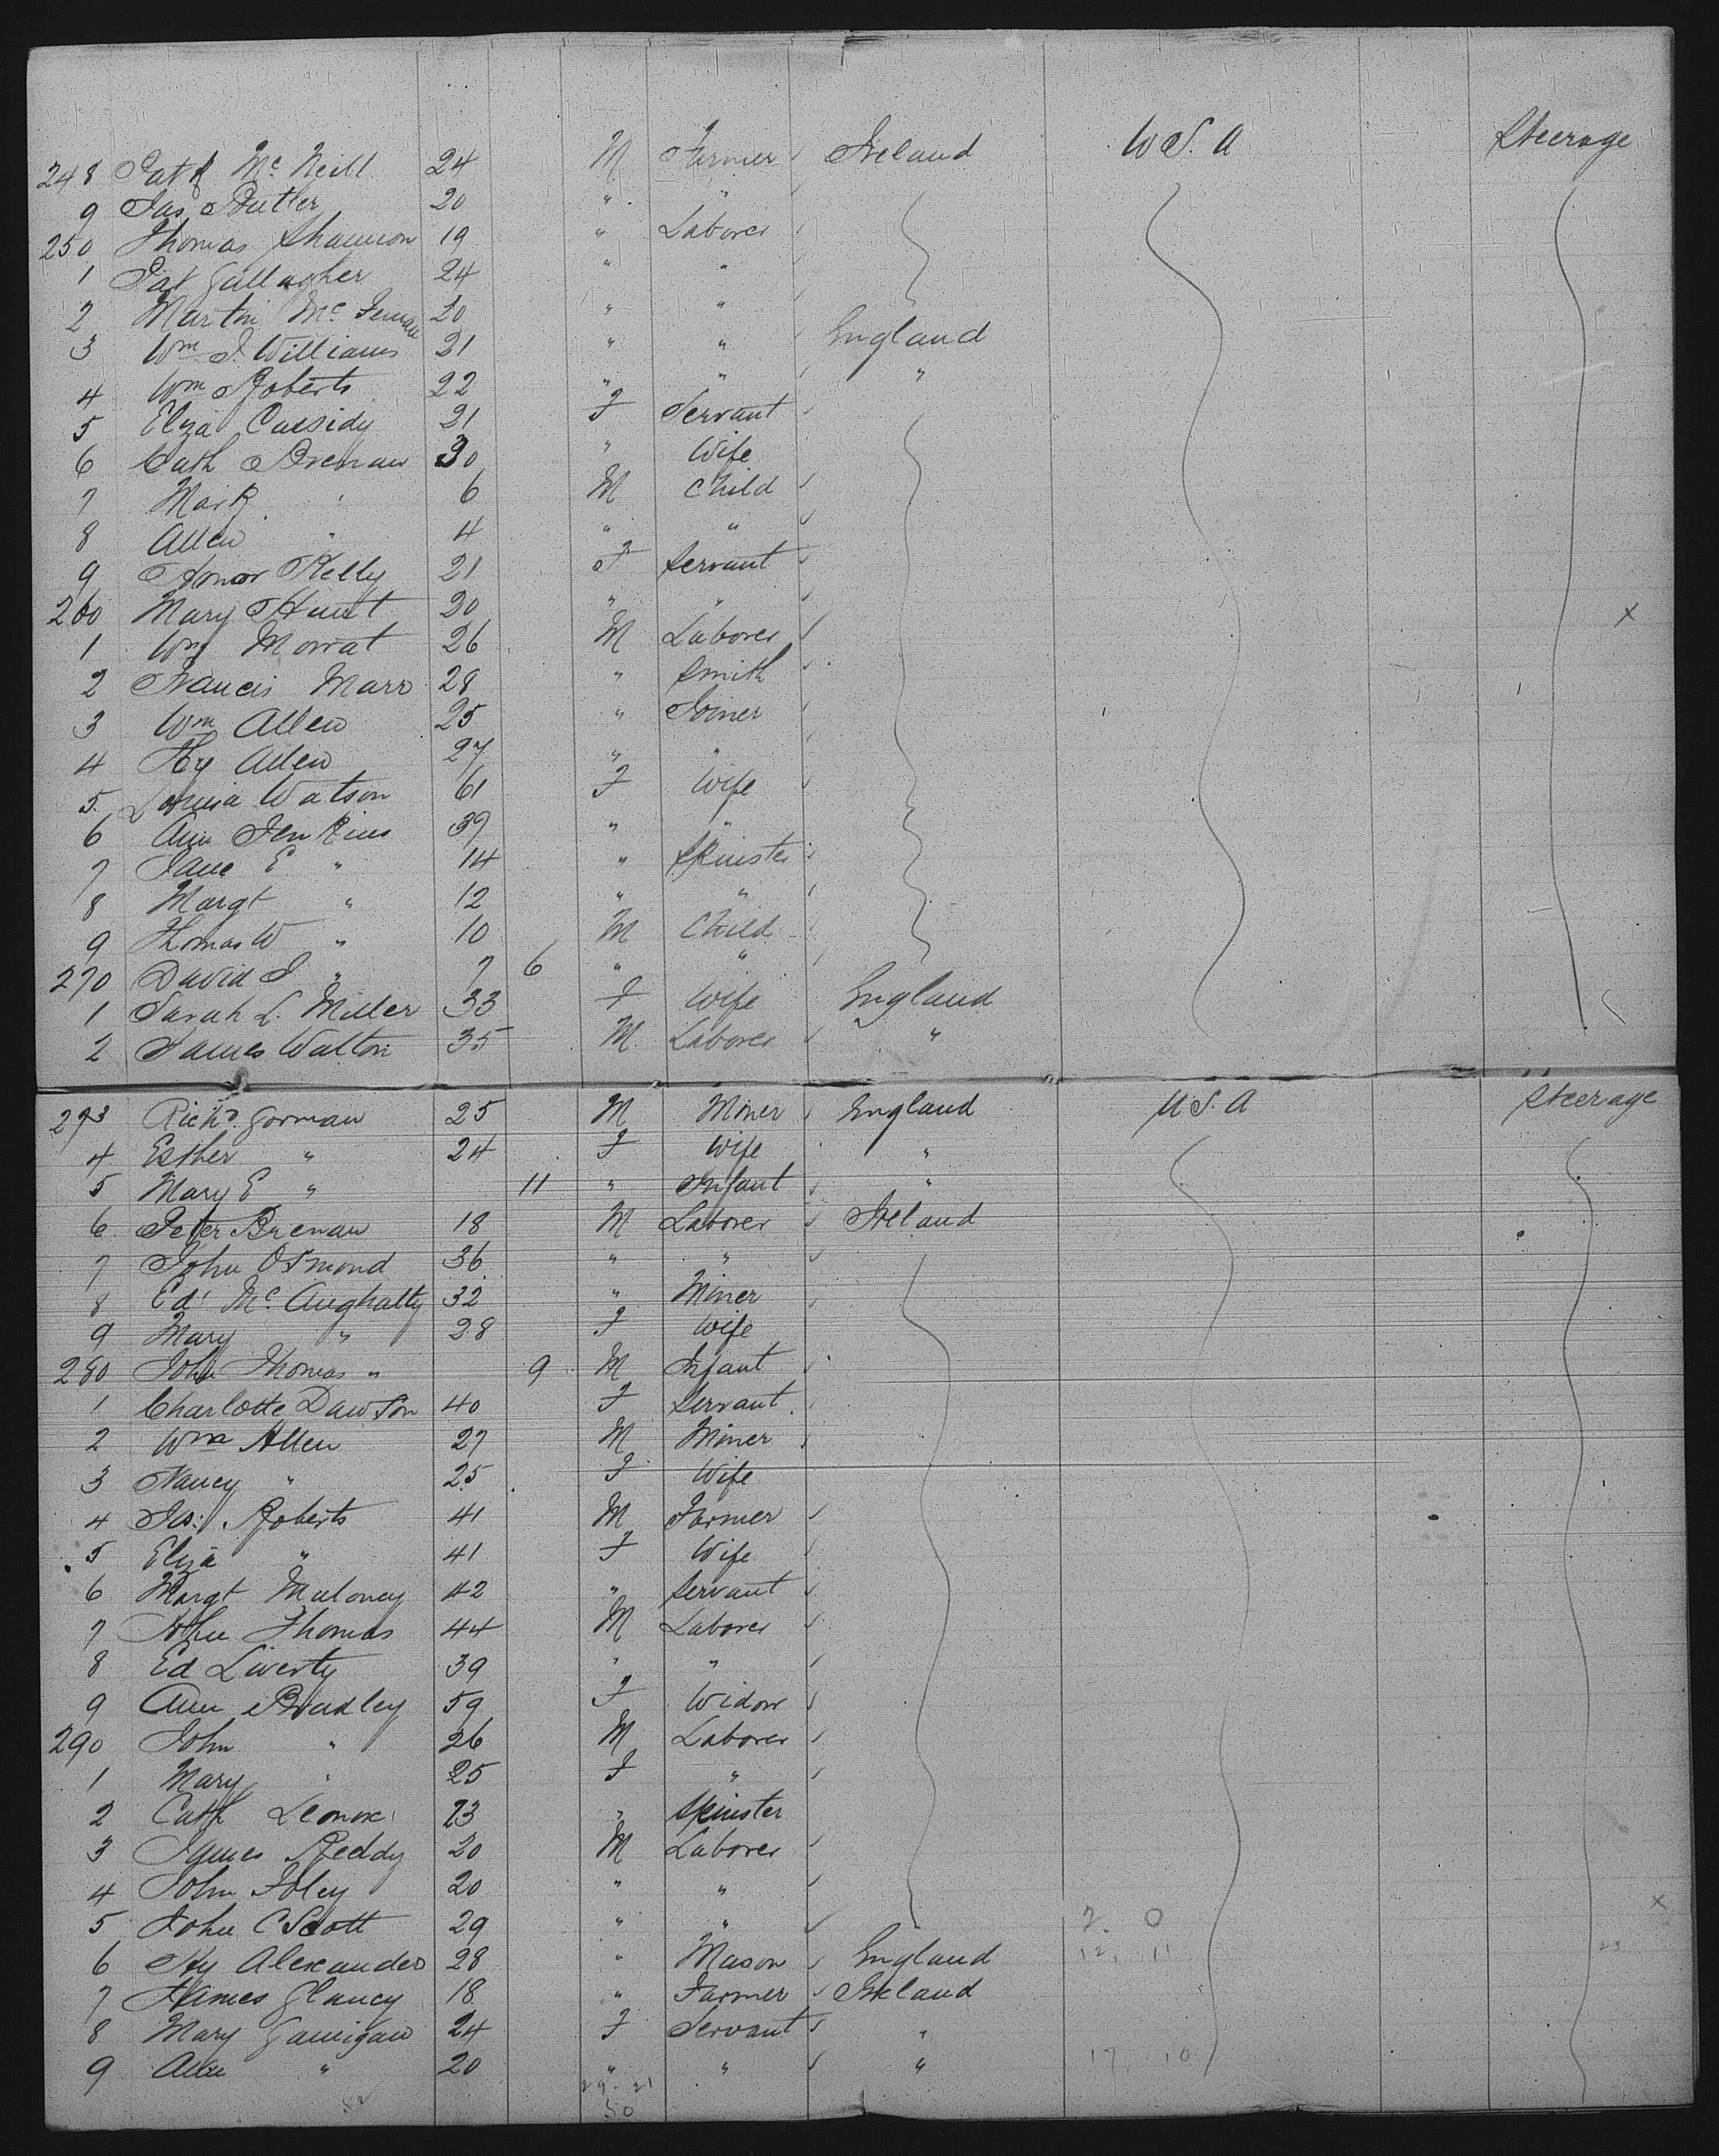 248 Patk Mc Neill 24 M Farmer Ireland U S. A Steerage
9 Jas. Butler 20 " "
250 Thomas Shannon 19 " Laborer
1 Pat Gallagher 24 " "
2 Martin Mc 20 " "
3 Wm J. Williams 21 " " England
4 Wm Roberts 22 " " "
5 Eliza Cassidy 21 F Servant
6 Cath Brenan 30 " Wife
7 Mark " 6 M Child
8 Allen " 4 " "
9 Honor Kelly 21 F Servant
260 Mary Hunt 20 " " x
1 Wm Morrat 26 M Laborer
2 Francis Marr 28 " Smith
3 Wm Allen 25 " Joiner
4 Hy Allen 27 " "
5. Louisa Watson 61 F Wife
6 Ann Jenkins 39 " "
7 Jane E " 14 " Spinster
8 Margt " 12 " "
9 Thomas W " 10 M Child
270 David J " 7 6 " "
1 Sarah L. Miller 33 F Wife England
2 James Walton 35 M Laborer "
273 Richd. Gorman 25 M Miner England U S. A Steerage
4 Esther " 24 F Wife "
5 Mary E " 11 " Infant "
6 Peter Brenan 18 M Laborer Ireland
7 John Osmond 36 " "
8 Ed. Mc Aughalty 32 " Miner
9 Mary " 28 F Wife
280 John Thomas " 9 M Infant
1 Charlotte Dawson 40 F Servant
2 Wm Allen 27 M Miner
3 Nancy " 25 F Wife
4 Jas. Roberts 41 M Farmer
5 Eliza " 41 F Wife
6 Margt Maloney 42 " Servant
7 John Thomas 44 M Laborer
8 Ed Liverty 39 " "
9 Ann Bradley 59 F Widow
290 John " 26 M Laborer
1 Mary " 25 F "
2 Cath Lenox 23 " Spinster
3 James Reddy 20 M Laborer
4 John Foley 20 " " x
5 John C Scott 29 " " 2. 0
6 Hy Alexander 28 " Mason England 12. 11 23
7 James Glancy 18 " Farmer Ireland
8 Mary Gannigan 24 F Servant "
9 Ann " 20 " " " 17. 10
29 - 21
50